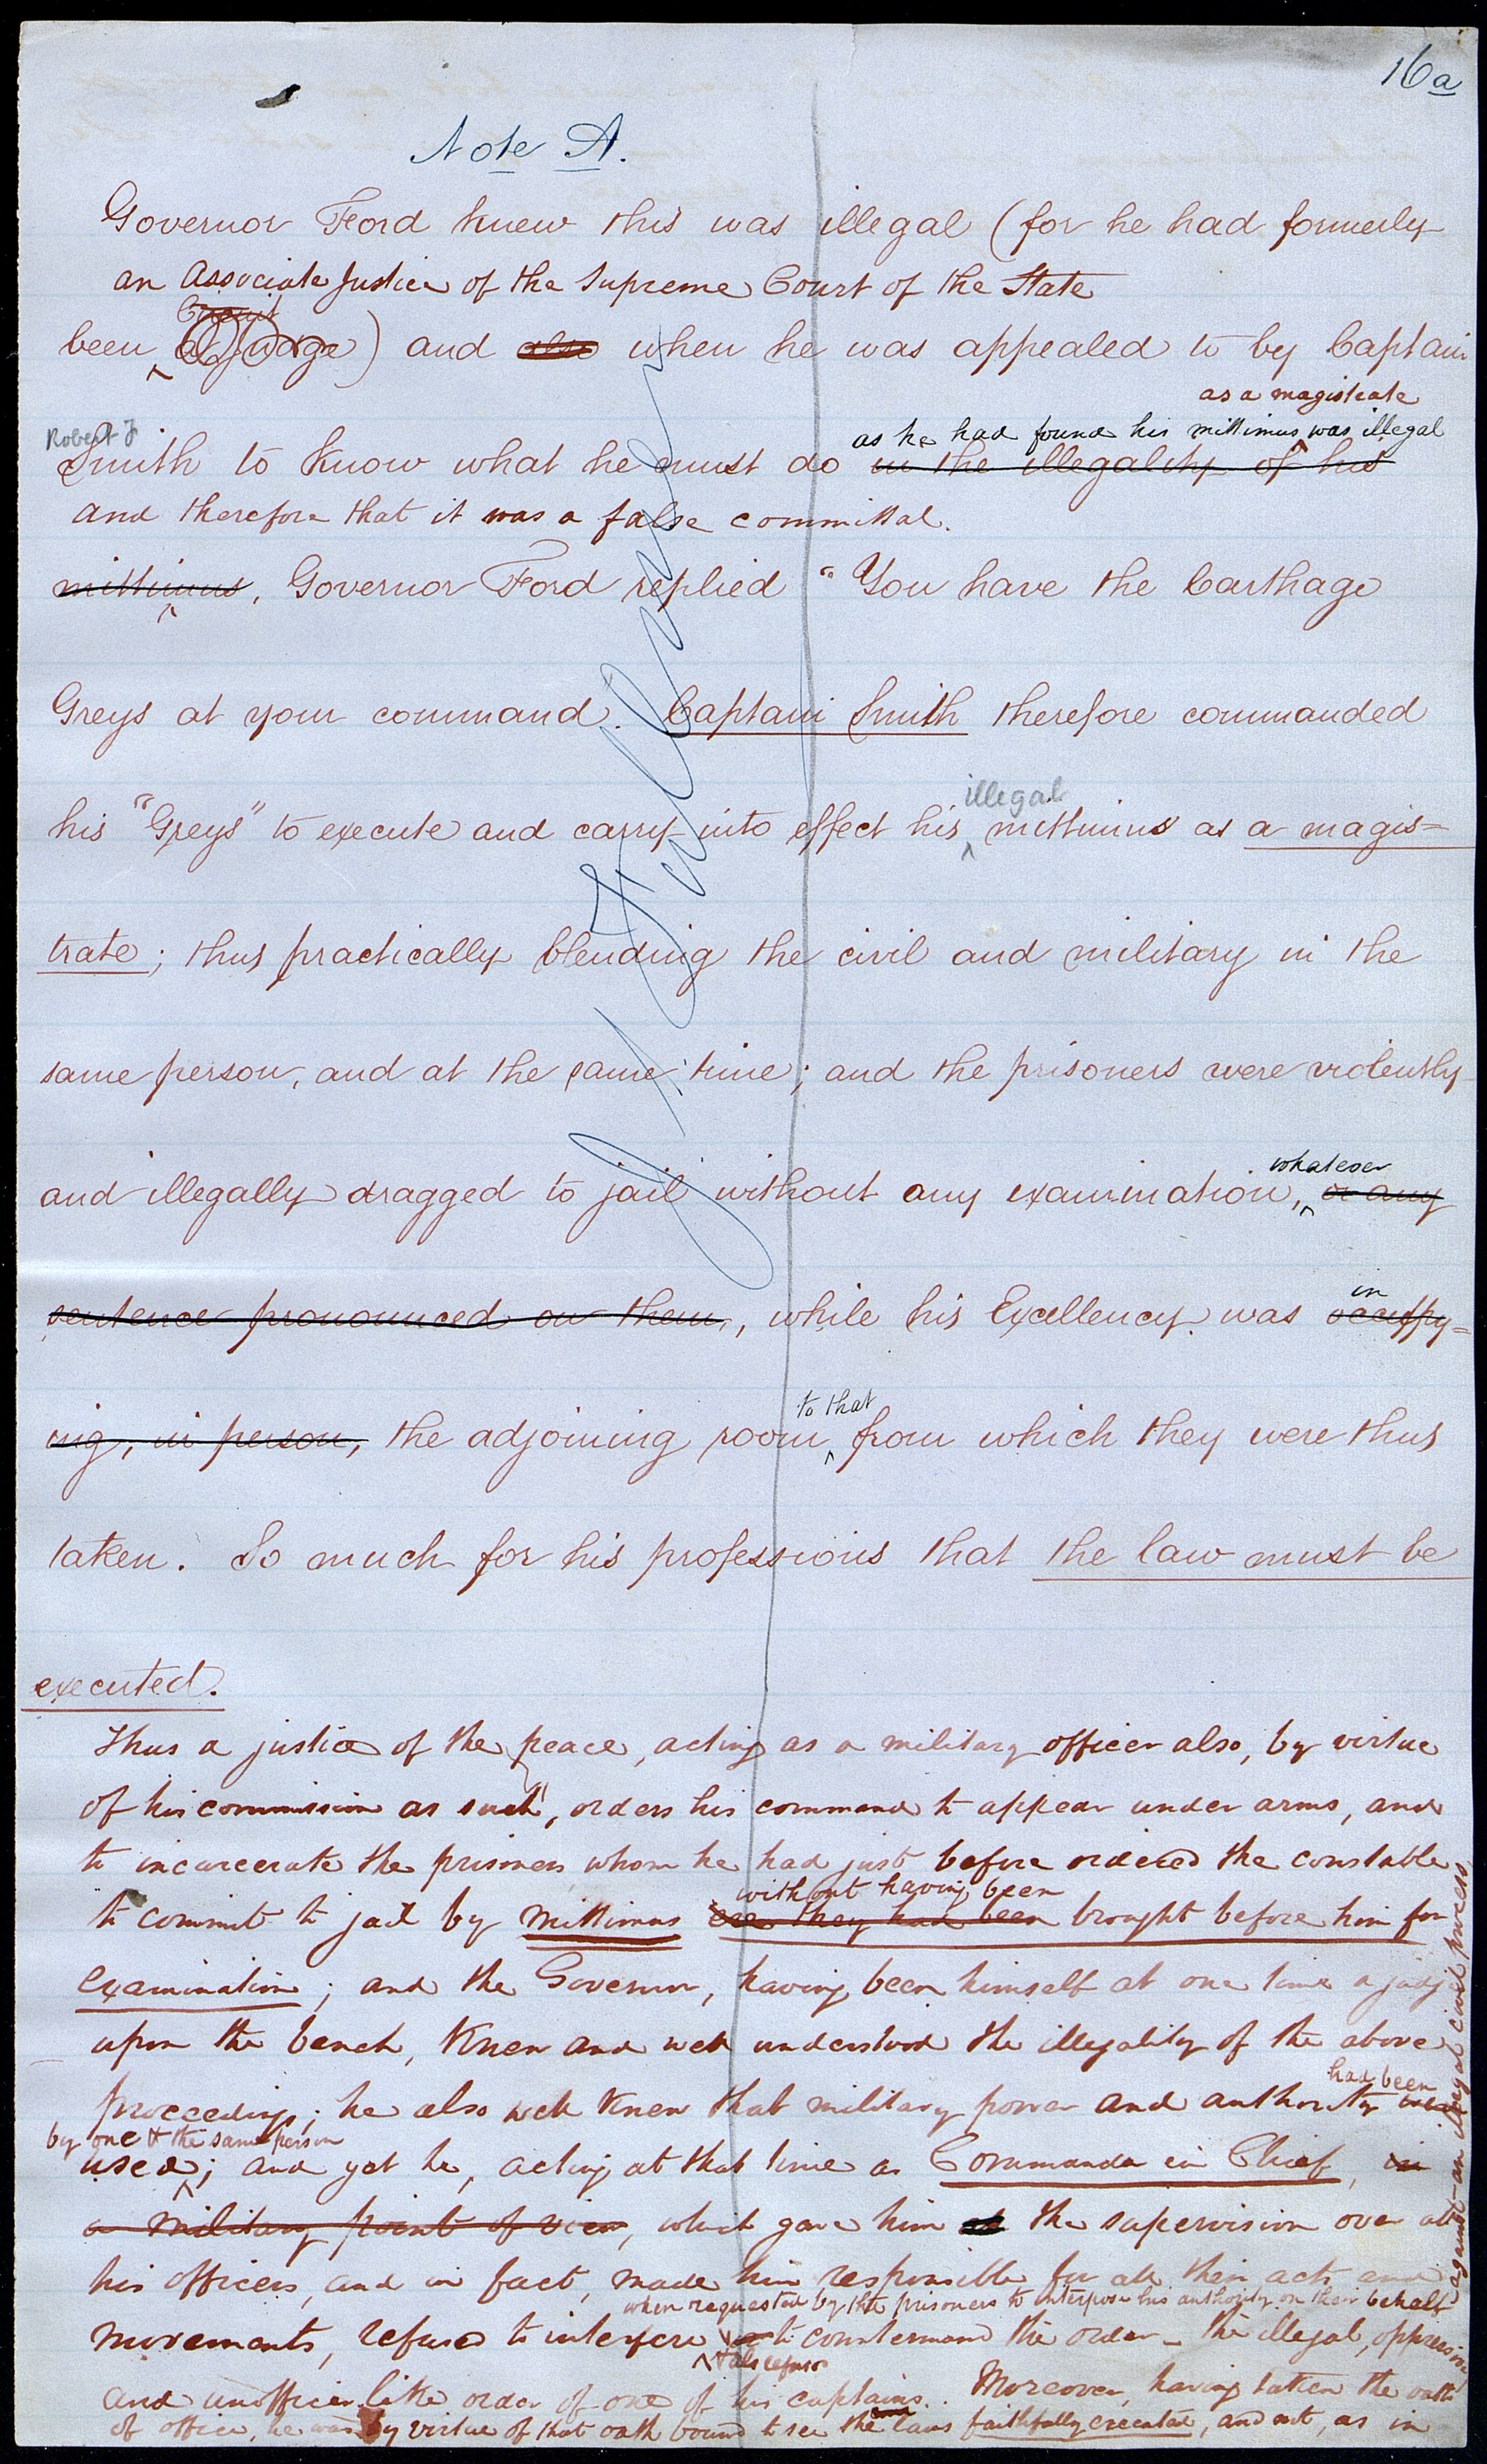 16a
Note A.
Governor Ford knew this was illegal (for he had formerly
an Associate Justice of the Supreme Court of the State
Circuit
been a Judge) and also when he was appealed to by Captain
as a magistrate
Robert F
as he had found his mittimus was illegal
Smith to know what he must do in the illegality of his
and therefore that it was a false committal.
mittimus, Governor Ford replied "You have the Carthage
Greys at your command. Captain Smith therefore commanded
illegal
his "Greys" to execute and carry into effect his mittimus as a magis=
trate; thus practically blending the civil and military in the
same person, and at the same time; and the prisoners were violently
whatever
and illegally dragged to jail without any examination, or any
in
sentence pronounced on them, while his Excellency was occupy=
to that
ing, in person, the adjoining room from which they were thus
taken. So much for his professions that the law must be
executed.
Thus a justice of the peace, acting as a military officer also, by virtue
of his commission as such, orders his command to appear under arms, and
to incarcerate the prisoners whom he had just before ordered the constable
without having been
to commit to jail by mittimus ere they had been brought before him for
examination; and the Governor, having been himself at one time a judge
upon the bench, knew and well understood the illegality of the above
had been
proceedings; he also well knew that military power and authority was
by one & the same person
used; and yet he, acting at that time as Commander in Chief, in
a military point of view, which gave him the supervision over all
his officers, and in fact, made him responsible for all their acts and
when requested by the prisoners to interpose his authority on their behalf
against an illegal civil process
movements, refused to interfere to countermand the order – the illegal, oppressive
& also refused
and unofficer like order of one of his captains. Moreover, having taken the oath
of office, he was by virtue of that oath bound to see the laws faithfully executed, and not, as in
J M Fullmer